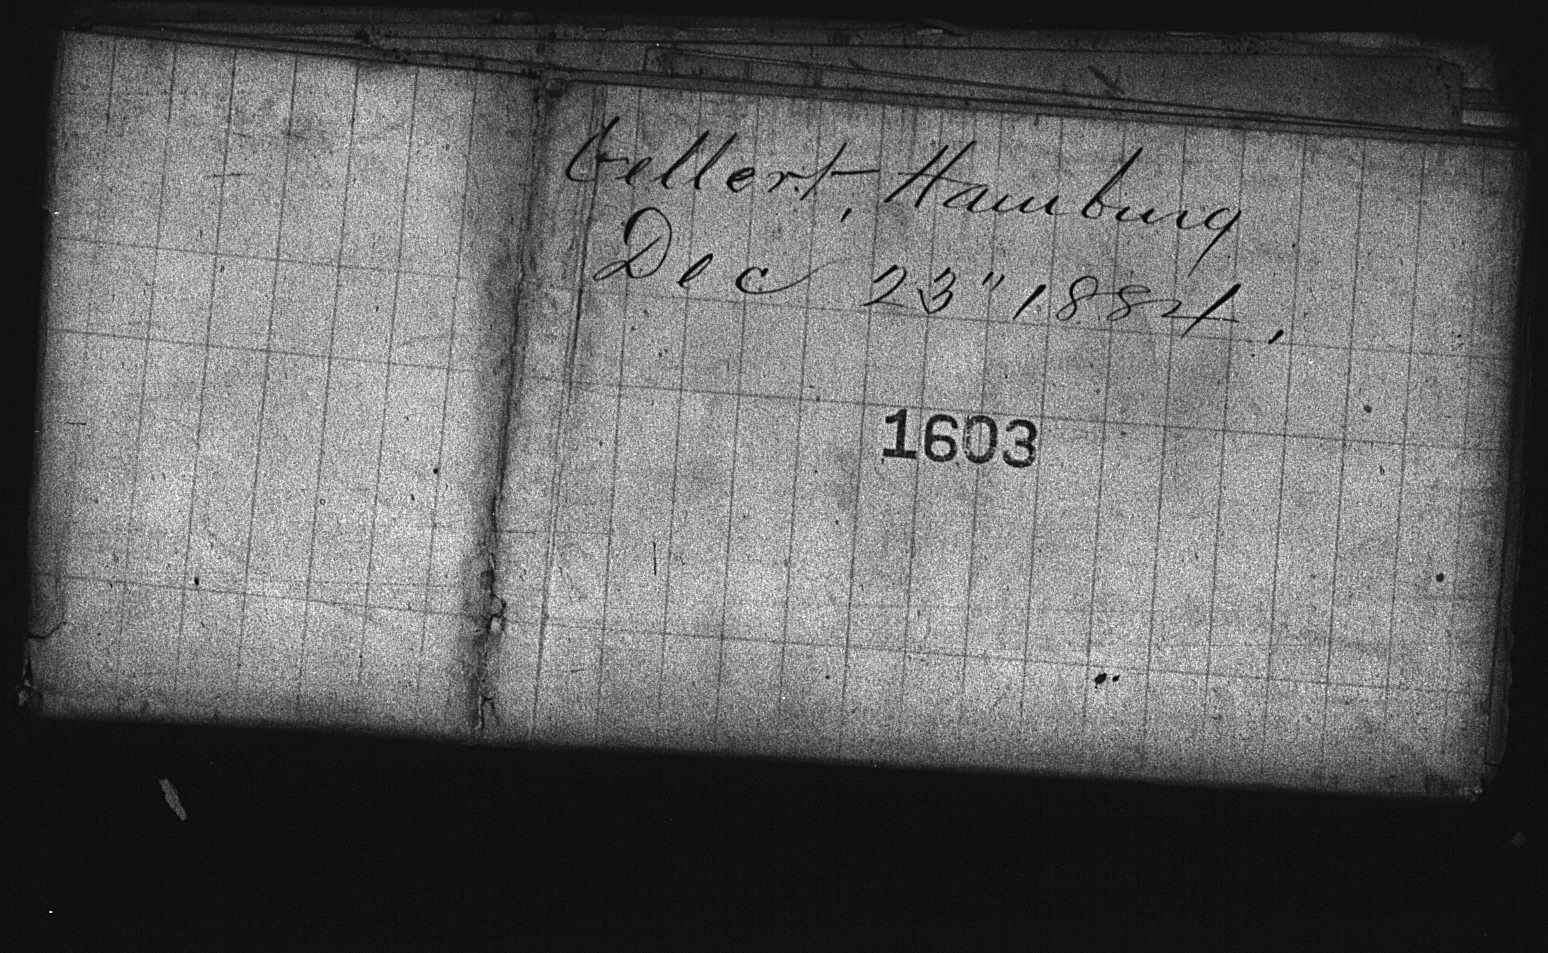 Gellert, Hamburg
Dec 23" 1884,
1603